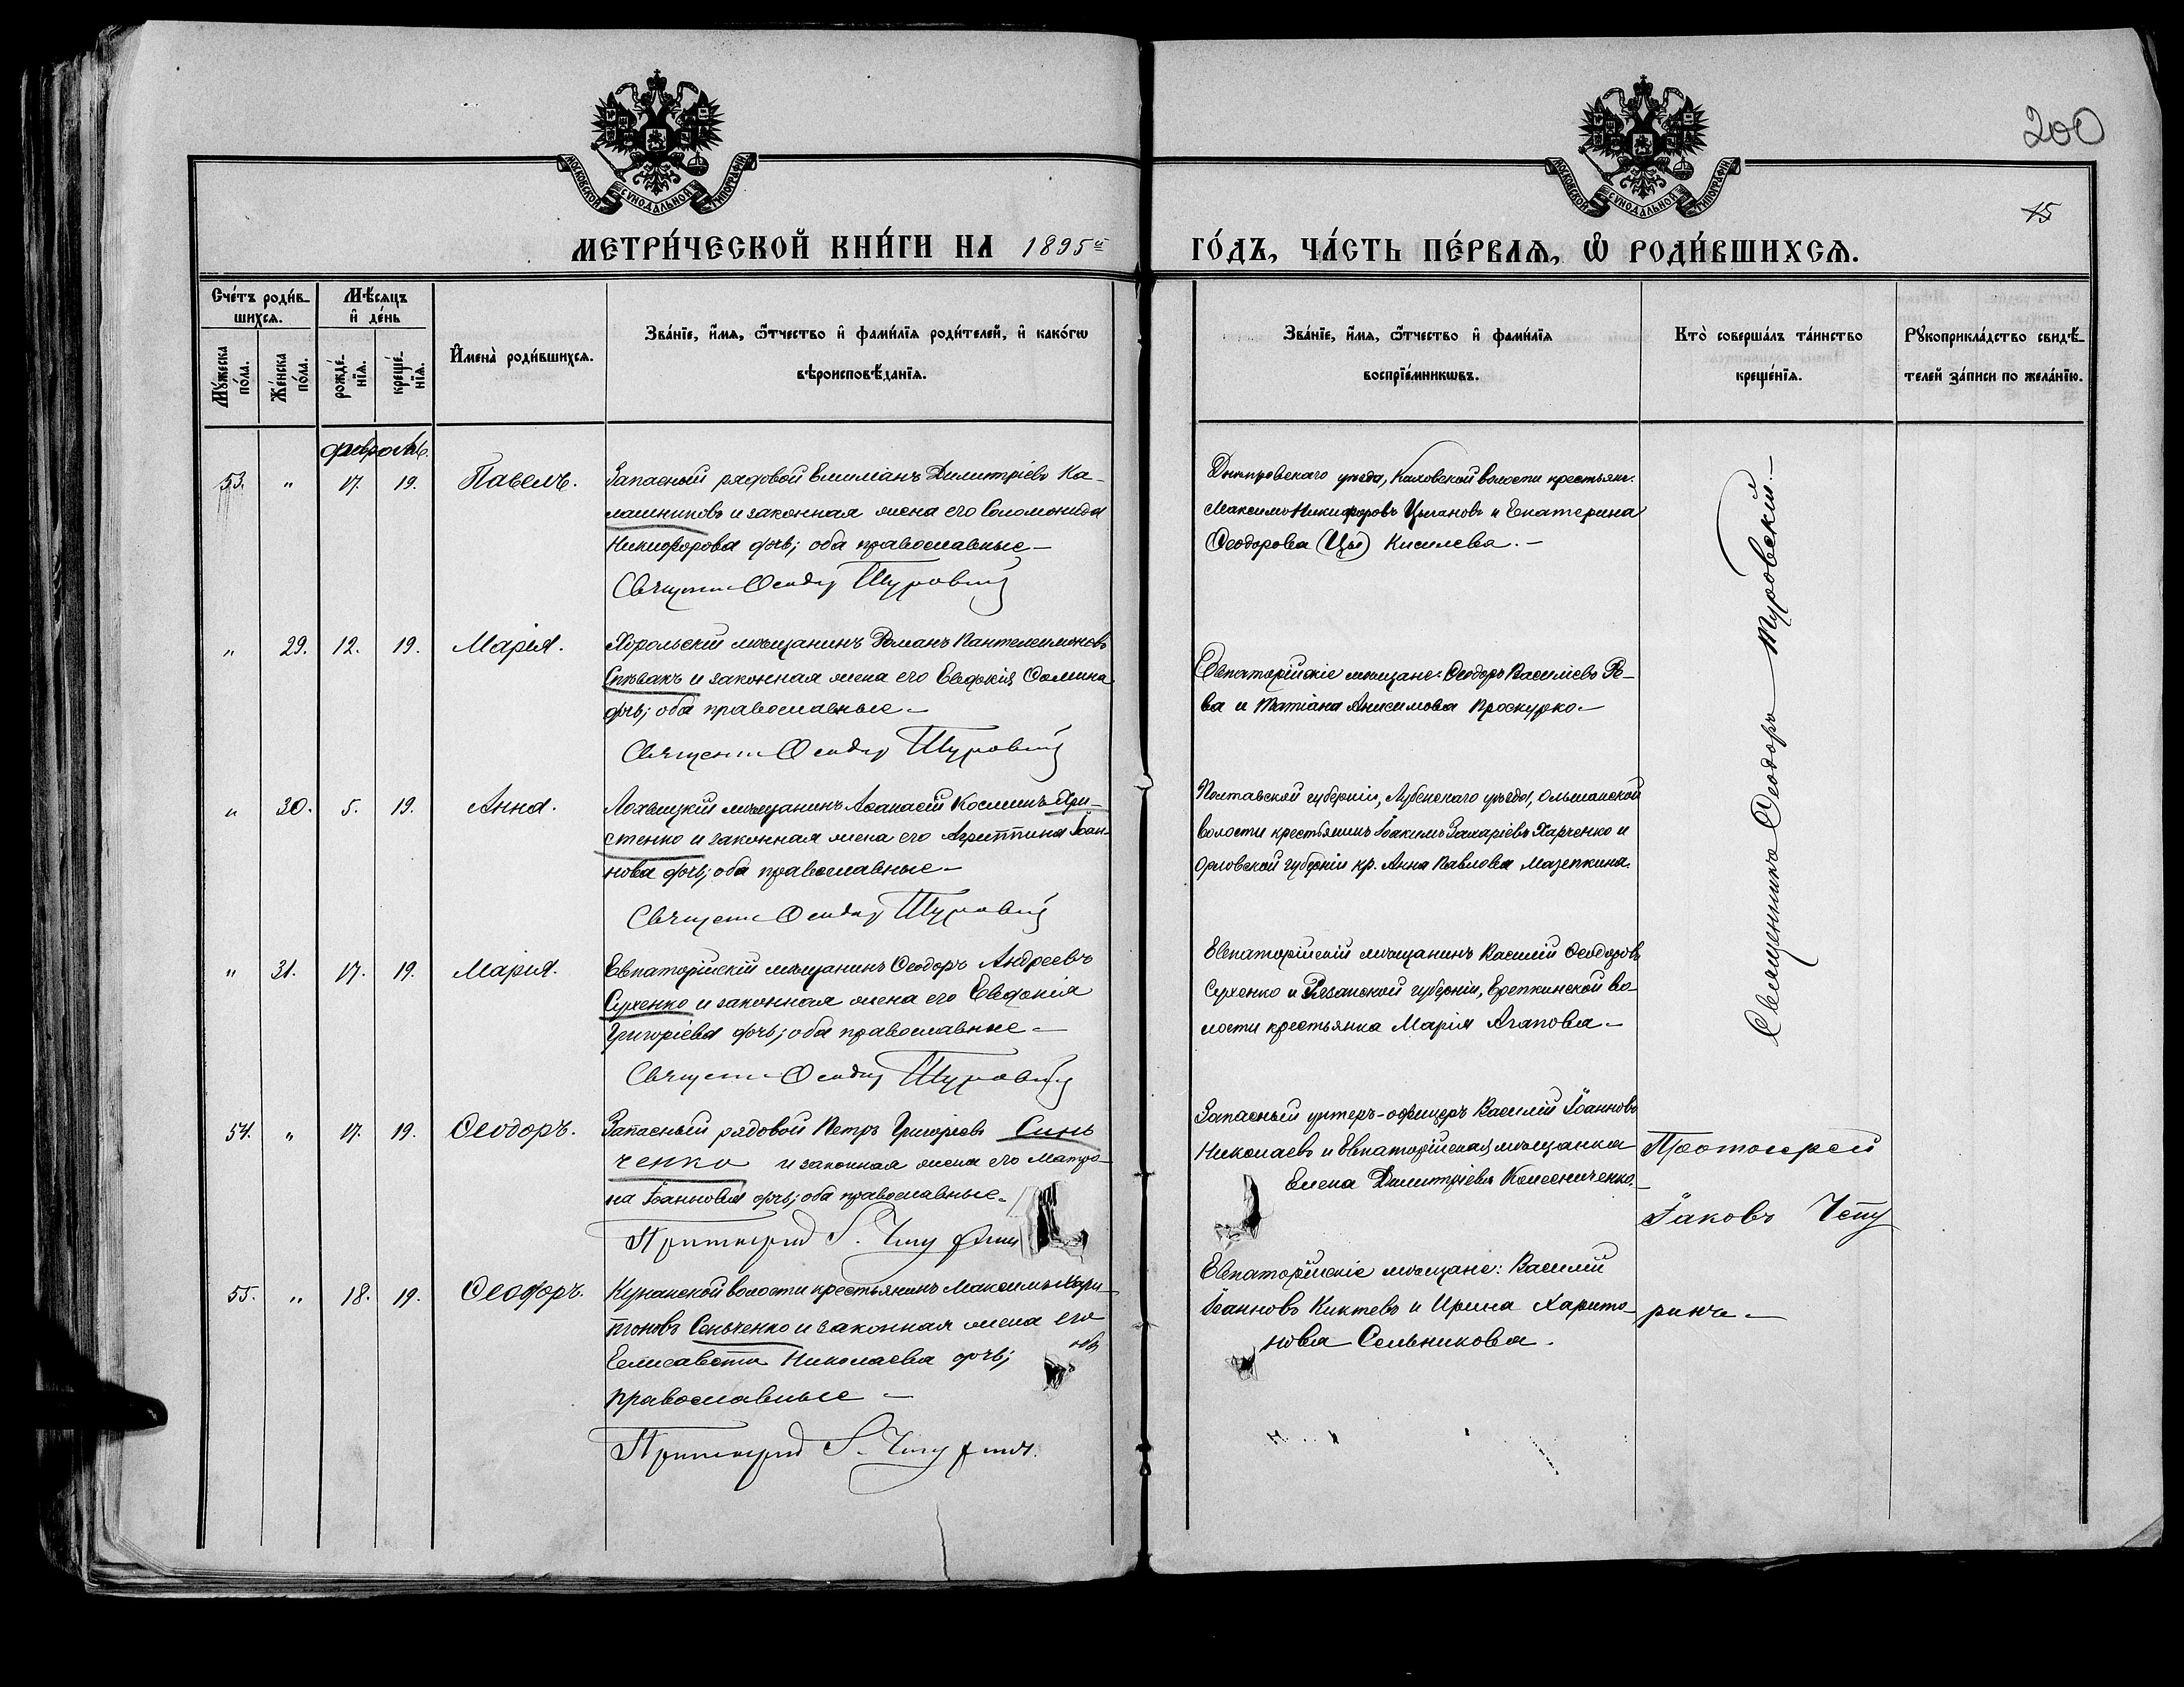 200
15
МОСКОВСКОЙ СѴНОДАЛЬНОЙ ТИПОГРАФІИ
МОСКОВСКОЙ СѴНОДАЛЬНОЙ ТИПОГРАФІИ
МЕТРИ́ЧЕСКОЙ КНИ́ГИ НА 1895й ГО́ДЪ, ЧА́СТЬ ПЕ́РВАѦ, Ѡ РОДИ́ВШИХСѦ.
Сче́тъ роди́в-
шихсѧ.
Мѣ́сѧцъ
и де́нь
Мꙋ́жеска
по́ла.
Же́нска
по́ла.
рожде́-
нїѧ.
креще́-
нїѧ.
Имена̀ роди́вшихсѧ.
Зва́нїе, и́мѧ, ѻ҆́тчество и фами́лїѧ роди́телей, и како́гѡ
вѣроисповѣ́данїѧ.
Зва́нїе, и́мѧ, ѻ҆́тчество и фами́лїѧ
воспрїе́мникѡвъ.
Кто̀ соверша́лъ та́инство
креще́нїѧ.
Рꙋкоприкла́дство свидѣ́-
телей за́писи по жела́нїю.
февраль.
53. " 17. 19. Павелъ.
Запасный рядовой Емиліанъ Димитріевъ Ка-
лашниковъ и законная жена его Соломонида
Никифорова дочь; оба православные —
Священ. Ѳеодор Туровскій
Днепровскаго уезда, Каховской волости крестьяне:
Максимъ Никифоровъ Цыгановъ и Екатерина
Ѳеодорова (Цы) Киселева. —
" 29. 12. 19. Марія.
Хорольскій мѣщанинъ Романъ Пантелеимоновъ
Спѣвакъ и законная жена его Евдокія Ѳомина
дочь; оба православные —
Священ. Ѳеодор Туровскій
Евпаторійскіе мѣщане: Ѳеодоръ Василіевъ Рѣ-
ва и Татіана Анисимова Проскурко. —
" 30. 5. 19. Анна.
Лохвицкій мѣщанинъ Аѳанасій Косминъ Хри-
стенко и законная жена его Агриппина Іоан-
нова дочь; оба православные —
Священ. Ѳеодор Туровскій
Полтавской губерніи, Лубенскаго уезда, Ольшанской
волости крестьянинъ Іоакимъ Захаріевъ Харченко и
Орловской губерніи кр. Анна Павлова Мазепкина.
" 31. 17. 19. Марія.
Евпаторійскій мѣщанинъ Ѳеодоръ Андреевъ
Сухенко и законная жена его Евдокія
Григоріева дочь; оба православные —
Священ. Ѳеодор Туровскій
Евпаторійскій мѣщанинъ Василій Ѳеодоровъ
Сухенко и Рязанской губерніи, Ерепкинской во-
лости крестьянка Марія Агапова —
Священникъ Ѳеодоръ Туровскій. —
54. " 17. 19. Ѳеодоръ.
Запасный рядовой Петръ Григоріевъ Синь
ченко и законная жена его Матро-
на Іоаннова дочь; оба православные.
Протоіерей І. Чепу рин
Запасный унтеръ-офицеръ Василій Іоанновъ
Николаевъ и Евпаторійская мѣщанка
Елена Димитріева Колесниченко. —
Протоіерей
Іаковъ Чепу
ринъ —
55. " 18. 19. Ѳеодоръ.
волости крестьянинъ Максимъ Хари-
тоновъ Сеньченко и законная жена его
Елисавета Николаева дочь; оба
православные —
Протоіерей І. Чепу рин.
Евпаторійскіе мѣщане: Василій
Іоанновъ Киктевъ и Ирина Харито-
нова Сельникова.